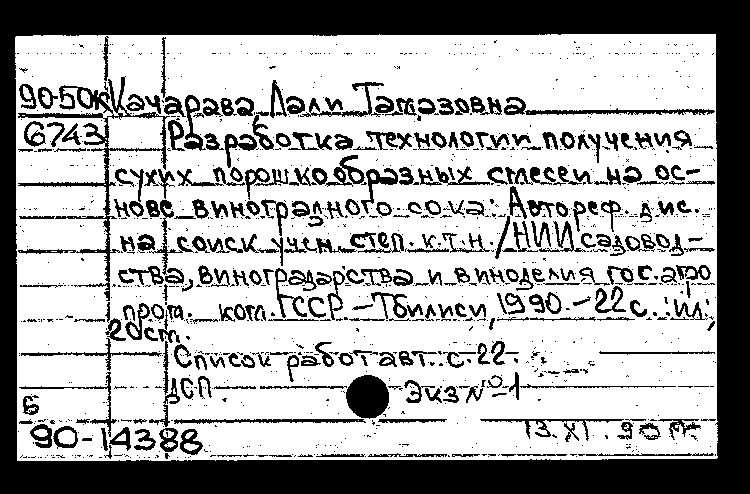 90-50к Качарава, Лали Тамазовна
6743 Разработка технологии получения
сухих порошкообразных смесей на ос-
нове виноградного сока: Автореф. дис.
на соиск. учен. степ. к.т.н. / НИИ садовод-
ства, виноградарства и виноделия гос. агро
пром. ком. ГССР. - Тбилиси, 1990. - 22 с. : ил.;
20 см.
Список работ авт.: с. 22.
ДСП. Экз № 1
Б
90-14388 13.XI.90